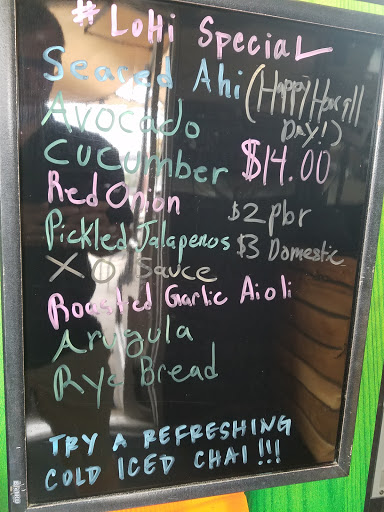 # LoHi Special
Seared Ahi
(Happy Hour all
DAY!)
Avocado
Cucumber $14.00
Red Onion
$2 pbr
Pickled Jalapenos
$3 Domestic
XO Sauce
Roasted Garlic Aioli
Arugula
Rye Bread
TRY A REFRESHING
COLD ICED CHAI!!!